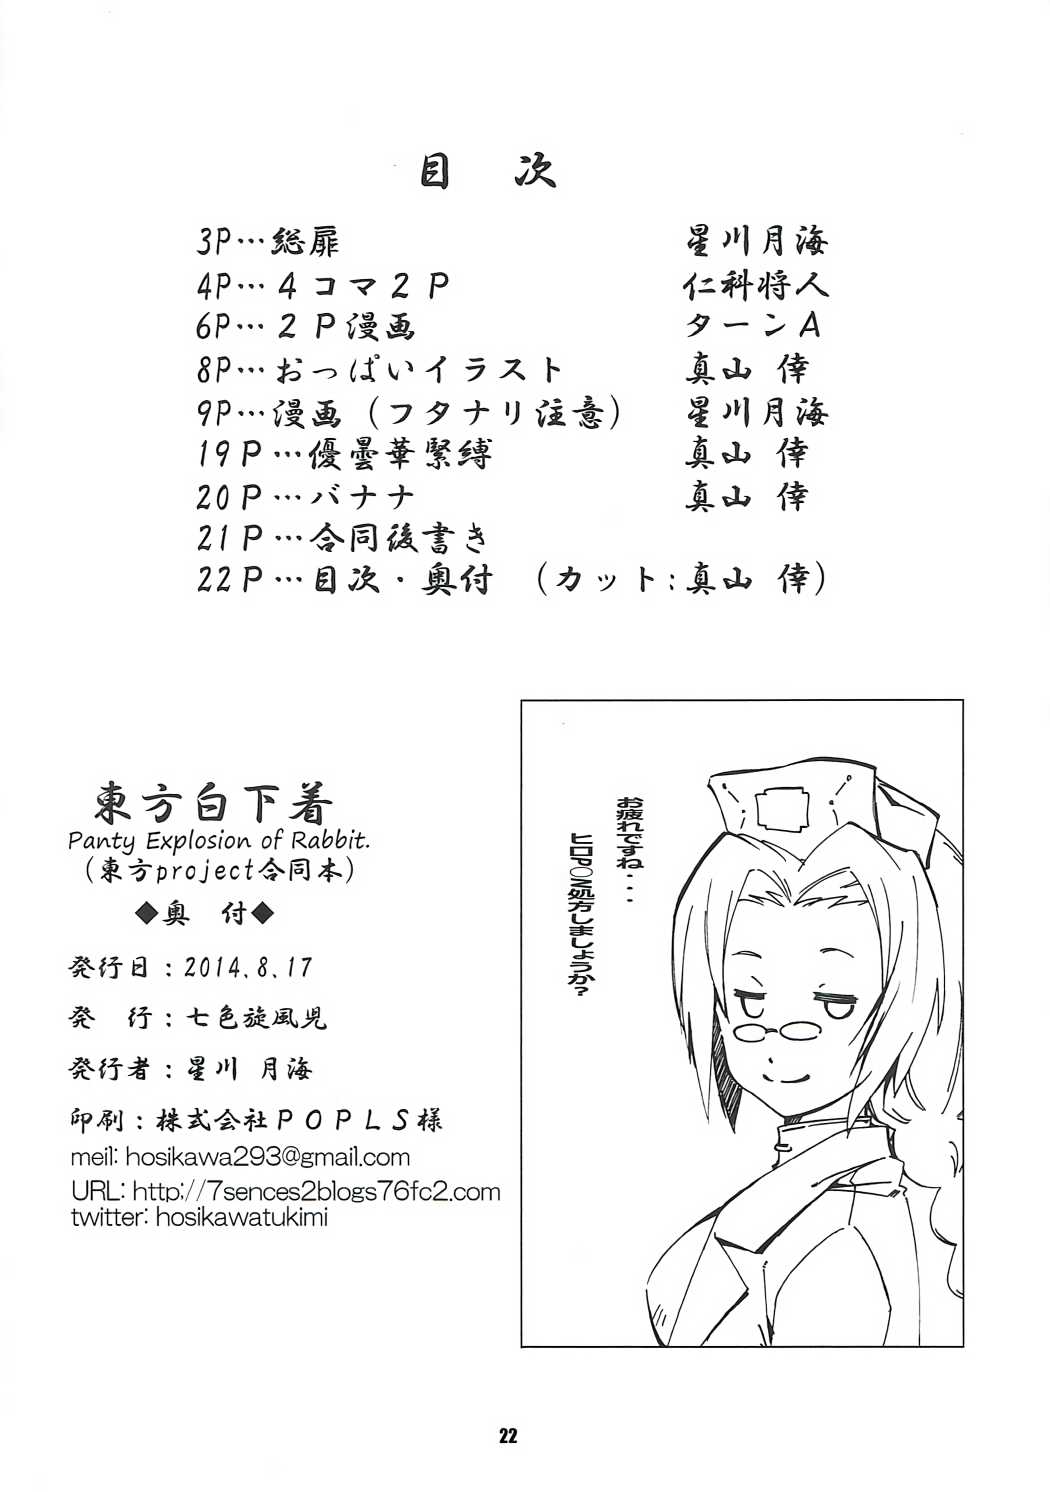 目　次
3P…総扉　星川月海
4P…４コマ２Ｐ　仁科将人
6P…２Ｐ漫画　ターンＡ
8P…おっぱいイラスト　真山　倖
9P…漫画（フタナリ注意）　星川月海
19P…優曇華緊縛　真山　倖
20P…バナナ　真山　倖
21P…合同後書き
22P…目次・奥付　（カット：真山　倖）
お疲れですね・・・
ヒロP○N処方しましょうか？
東方白下着
Panty Explosion of Rabbit.
（東方project合同本）
◆奥　付◆
発行日：2014.8.17
発　行：七色旋風児
発行者：星川　月海
印刷：株式会社ＰＯＰＬＳ様
meil: hosikawa293@gmail.com
URL: http://7sences2blogs76fc2.com
twitter: hosikawatukimi
22